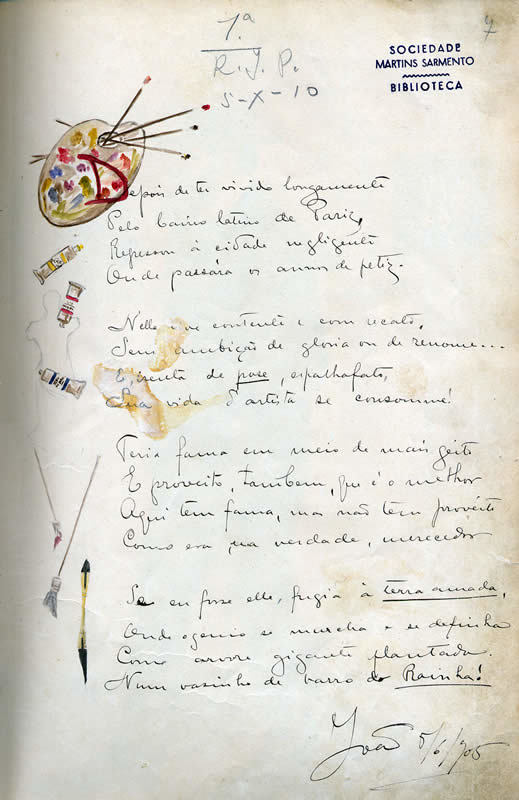 7
1.ª
R. I. P.
5-X-10
SOCIEDADE
MARTINS SARMENTO
BIBLIOTECA
Depois de ter vivido longamente
Pelo bairro latino de Pariz,
Regressou á cidade negligente
Onde passára os annos de petiz.
Nella vive contente e com recato,
Sem ambição de gloria ou de renome...
E, isenta de pose, espalhafato,
Sua vida d'artista se consomme!
Teria fama em meio de mais geito
E proveito, tambem, que é o melhor
Aqui tem fama, mas não tem proveito
Como era, na verdade, merecedor
Se eu fosse elle, fugia á terra amada,
Onde o genio se murcha e se definha
Como arvore gigante plantada
Num vasinho de barro da Rainha!
João 5/6/905